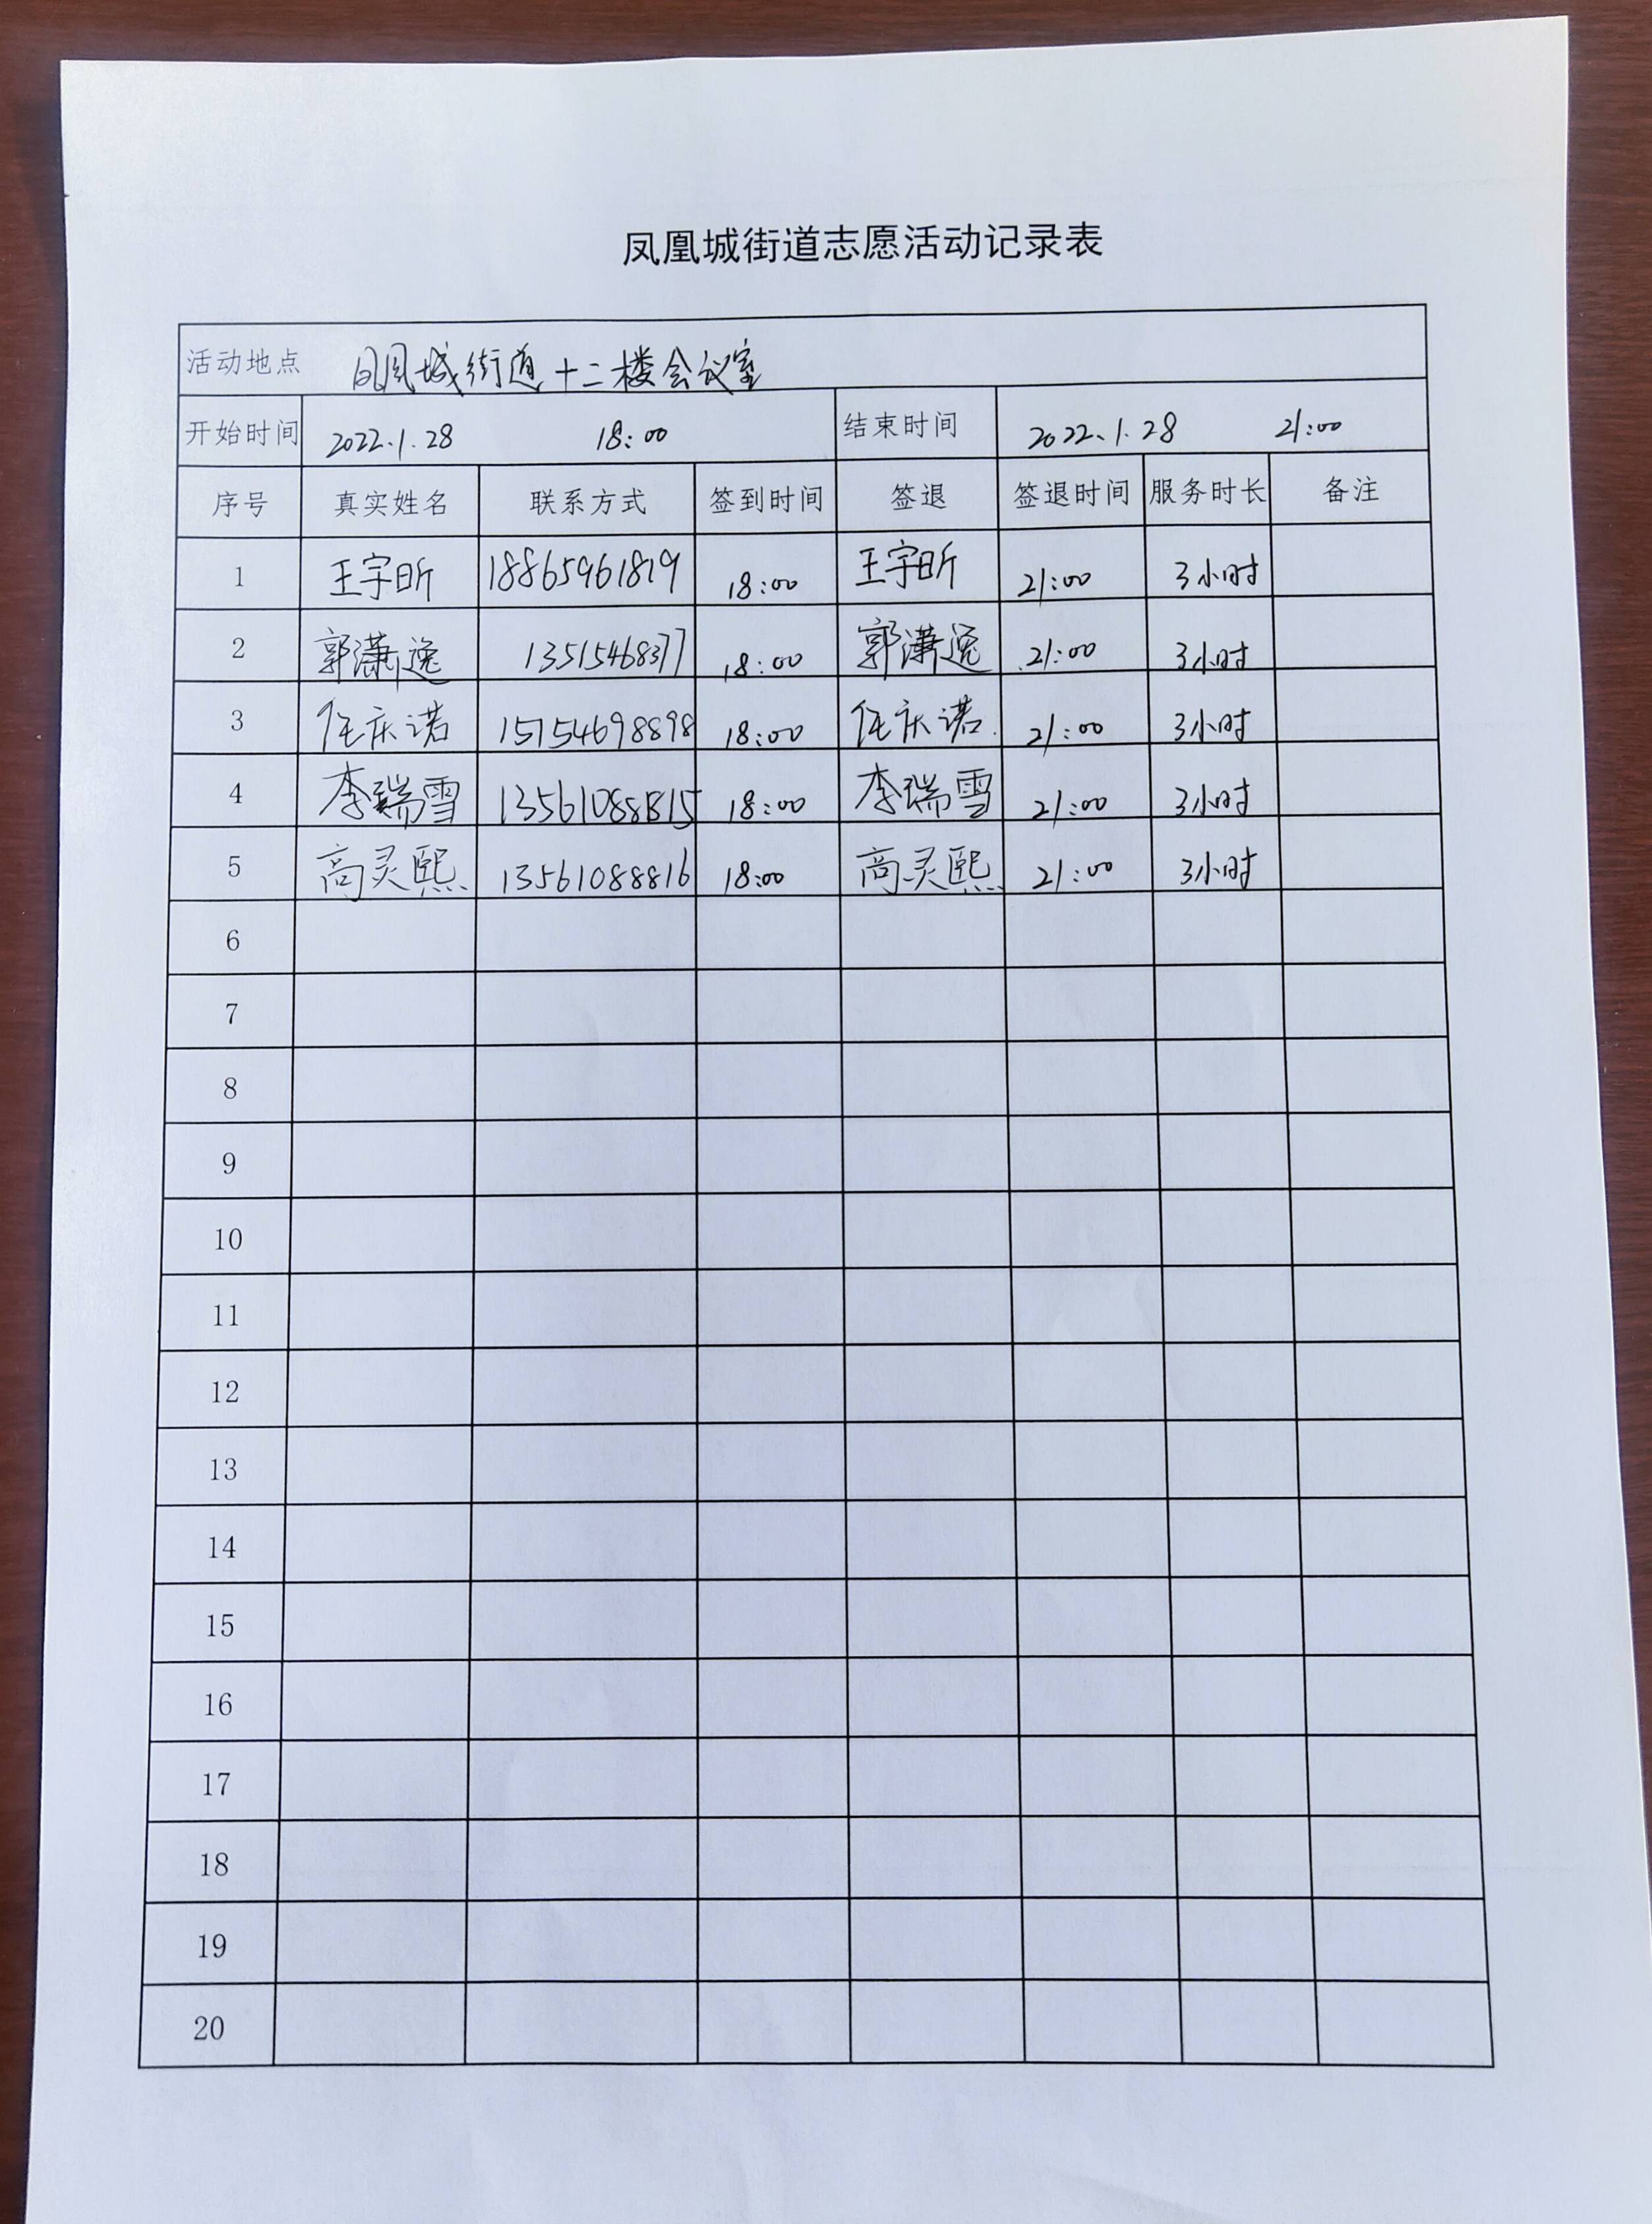 凤凰城街道志愿活动记录表
活动地点 凤凰城街道十二楼会议室
开始时间 2022.1.28 18:00 结束时间 2022.1.28 21:00
序号 真实姓名 联系方式 签到时间 签退 签退时间 服务时长 备注
1 王宇昕 18865961819 18:00 王宇昕 21:00 3小时
2 郭潇逸 13515468377 18:00 郭潇逸 21:00 3小时
3 任庆诺 15154698898 18:00 任庆诺 21:00 3小时
4 李瑞雪 18:00 李瑞雪 21:00 3小时
5 高灵熙 13561088816 18:00 高灵熙 21:00 3小时
6
7
8
9
10
11
12
13
14
15
16
17
18
19
20